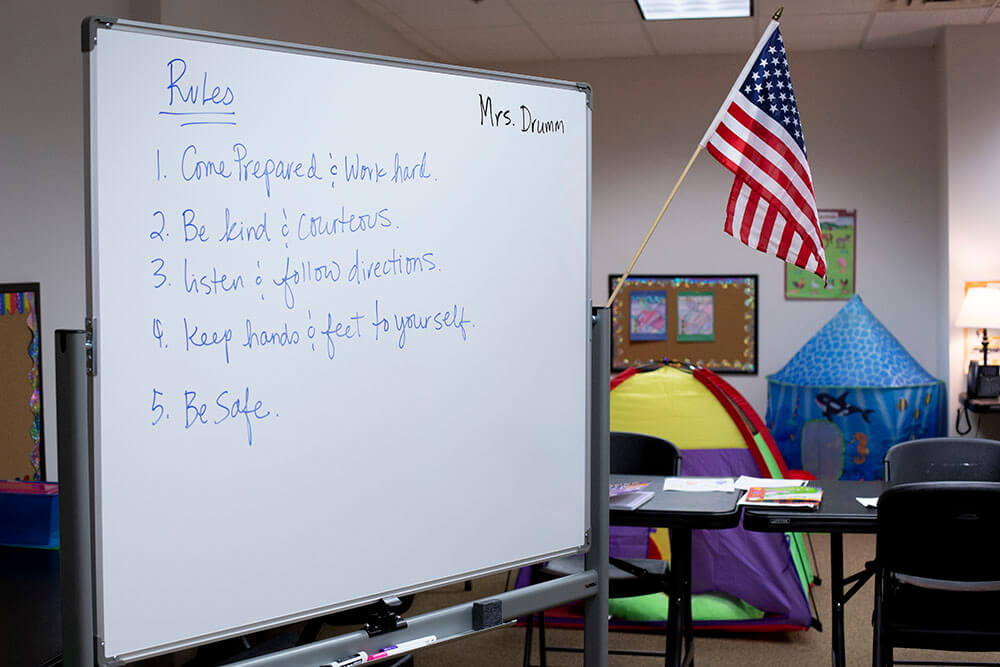 Rules
Mrs. Drumm
1. Come Prepared & Work hard.
2. Be kind & courteous.
3. Listen & follow directions.
4. Keep hands & feet to yourself.
5. Be Safe.